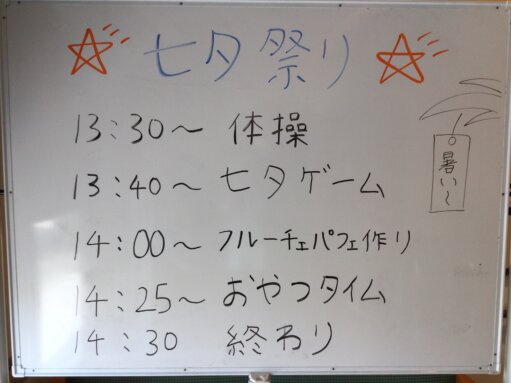 七夕祭り
13:30～ 体操
13:40～ 七夕ゲーム
14:00～ フルーチェパフェ作り
14:25～ おやつタイム
14:30 終わり
暑い～